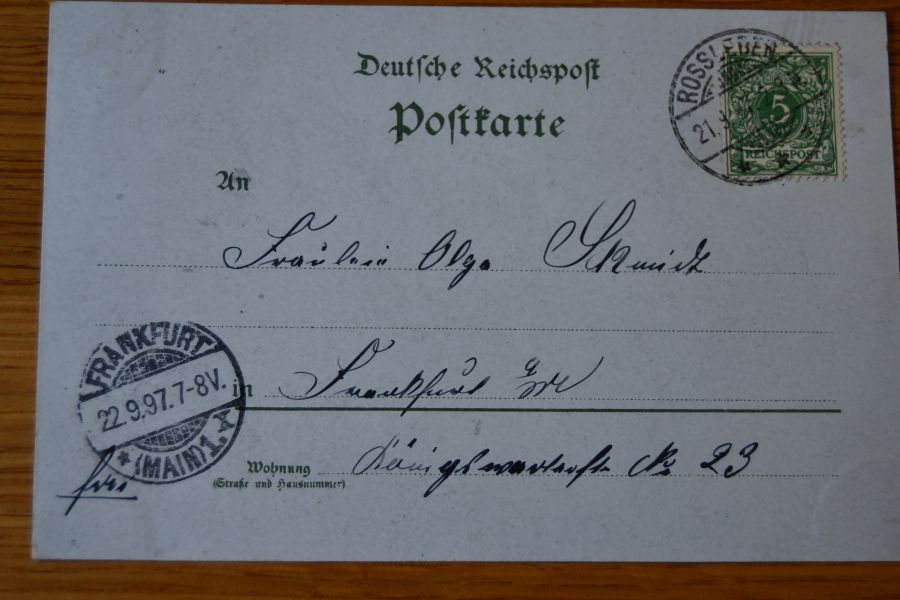 Deutsche Reichspost
Postkarte
ROSSLEBEN
21.9
5
REICHSPOST
An
Fräulein Olga Schmidt
FRANKFURT
22.9.97.7-8V.
* (MAIN) 1.
in Frankfurt a/M
Wohnung
(Straße und Hausnummer)
Königswarterstr No 23
frei